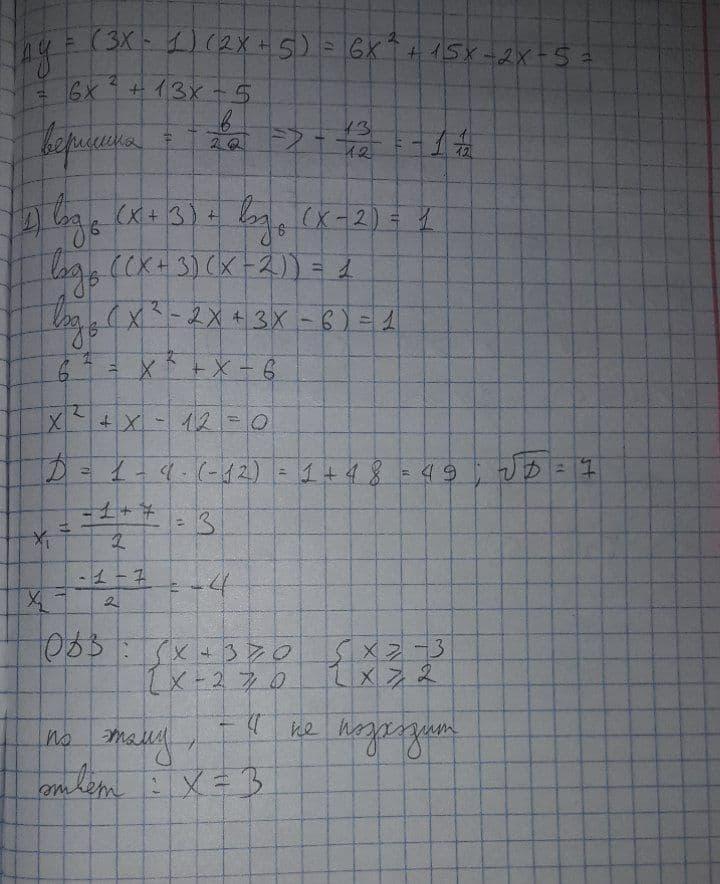 1) y = (3x - 1)(2x + 5) = 6x² + 15x - 2x - 5 =
= 6x² + 13x - 5
вершина = - в/2a => - 13/12 = - 1 1/12
1) log₆ (x + 3) + log₆ (x - 2) = 1
log₆ ((x + 3)(x - 2)) = 1
log₆ (x² - 2x + 3x - 6) = 1
6¹ = x² + x - 6
x² + x - 12 = 0
D = 1 - 4 · (-12) = 1 + 48 = 49 ; √D = 7
x₁ = (-1 + 7)/2 = 3
x₂ = (-1 - 7)/2 = -4
ОДЗ : { x + 3 ⩾ 0 { x ⩾ -3
{ x - 2 ⩾ 0 { x ⩾ 2
по этому, -4 не подходит
ответ : x = 3